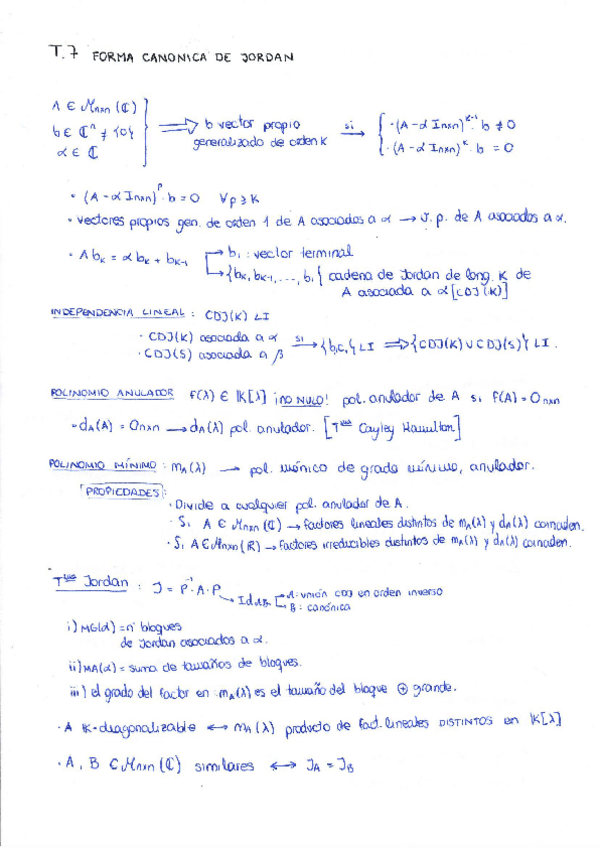 T.7 FORMA CANONICA DE JORDAN
A ∈ Mnxn (ℂ)
b ∈ ℂⁿ ≠ {0}
α ∈ ℂ
⟹ b vector propio
generalizado de orden K
si →
{ · (A - α Inxn)^(K-1) · b ≠ 0
· (A - α Inxn)^K · b = 0
• (A - α Inxn)^p · b = 0 ∀p ≥ K
• vectores propios gen. de orden 1 de A asociados a α → v. p. de A asociados a α.
• A bK = α bK + bK-1 → b1 : vector terminal
→ {bK, bK-1, ..., b1} cadena de Jordan de long. K de
A asociada a α [CDJ(K)]
INDEPENDENCIA LINEAL : CDJ(K) LI
· CDJ(K) asociada a α
· CDJ(S) asociada a β
si → {b1, c1} LI ⟹ {CDJ(K) ∪ CDJ(S)} LI.
POLINOMIO ANULADOR f(λ) ∈ 𝕂[λ] ¡NO NULO! pol. anulador de A si f(A) = Onxn
- dA(A) = Onxn → dA(λ) pol. anulador. [Tma Cayley Hamilton]
POLINOMIO MÍNIMO : mA(λ) → pol. mónico de grado mínimo, anulador.
PROPIEDADES :
· Divide a cualquier pol. anulador de A.
· Si A ∈ Mnxn (ℂ) → factores lineales distintos de mA(λ) y dA(λ) coinciden.
· Si A ∈ Mnxn (ℝ) → factores irreducibles distintos de mA(λ) y dA(λ) coinciden.
Tma Jordan : J = P⁻¹ · A · P
→ Id A,B [ A: unión CDJ en orden inverso
B : canónica
i) MG(α) = nº bloques
de Jordan asociados a α.
ii) MA(α) = suma de tamaños de bloques.
iii) el grado del factor en mA(λ) es el tamaño del bloque ⊕ grande.
· A 𝕂-diagonalizable ↔ mA(λ) producto de fact. lineales DISTINTOS en 𝕂[λ]
· A, B ∈ Mnxn (ℂ) similares ↔ JA = JB